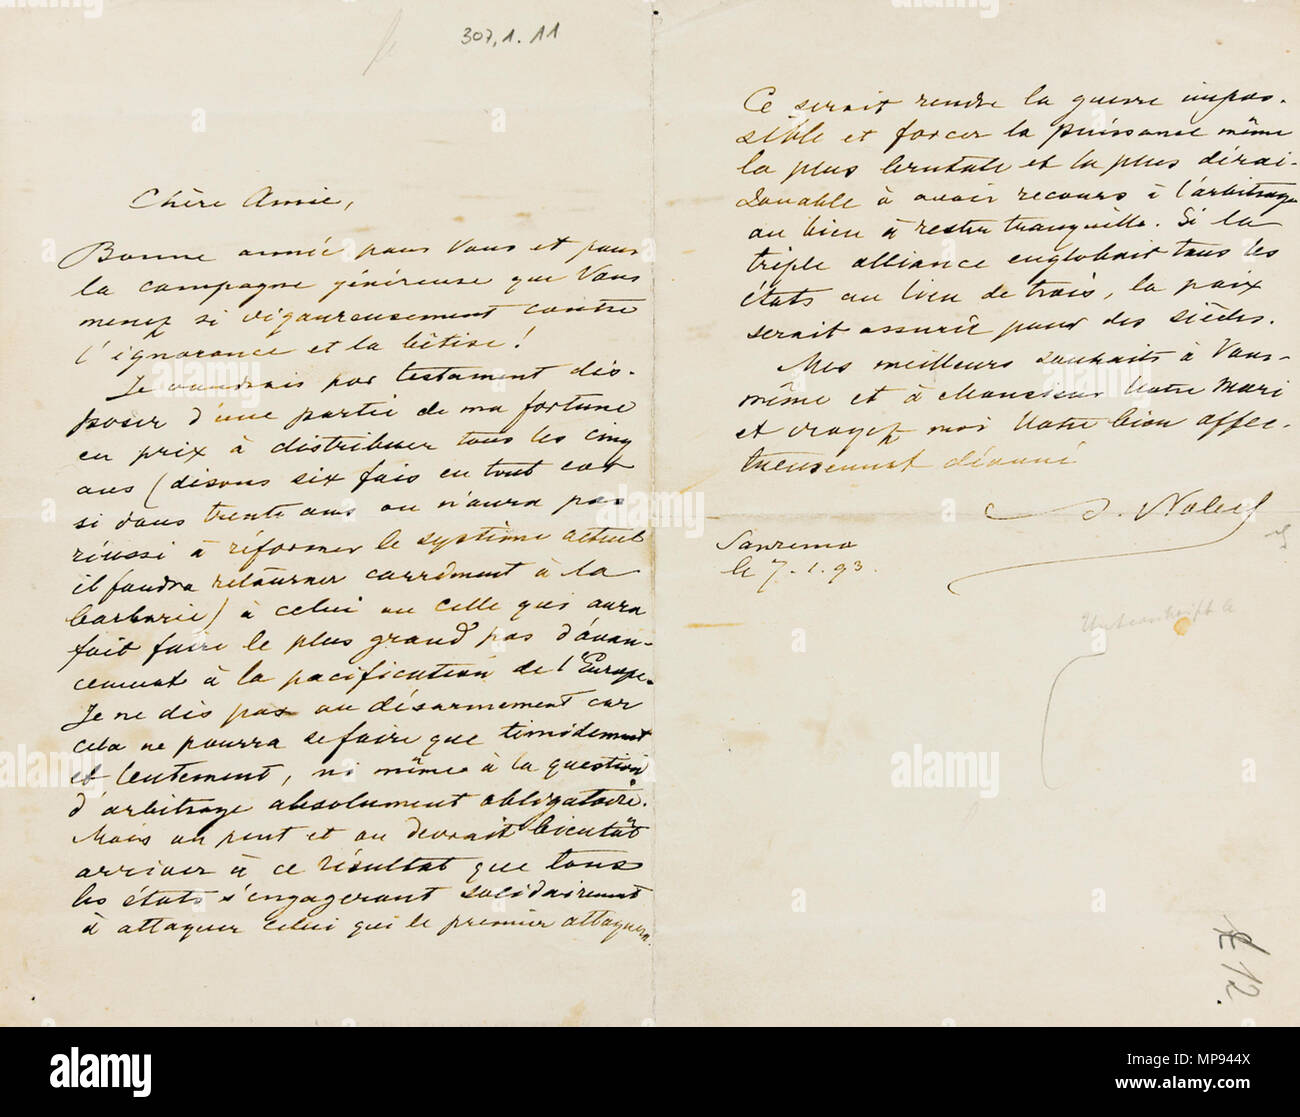 307,1.11
Chère Amie,
Bonne année pour Vous et pour
la campagne généreuse que Vous
menez si vigoureusement contre
l'ignorance et la bêtise!
Je voudrais par testament dis-
poser d'une partie de ma fortune
en prix à distribuer tous les cinq
ans (disons six fois en tout car
si dans trente ans on n'aura pas
réussi à réformer le système actuel
il faudra retourner carrément à la
barbarie) à celui ou celle qui aura
fait faire le plus grand pas d'avan-
cement à la pacification de l'Europe.
Je ne dis pas au désarmement car
cela ne pourra se faire que timidement
et lentement, ni même à la question
d'arbitrage absolument obligatoire.
Mais on peut et on devrait bientôt
arriver à ce résultat que tous
les états s'engageront solidairement
à attaquer celui qui le premier attaquera.
Ce serait rendre la guerre impos-
sible et forcer la puissance même
la plus brutale et la plus dérai-
sonnable à avoir recours à l'arbitrage
ou bien à rester tranquille. Si la
triple alliance englobait tous les
états au lieu de trois, la paix
serait assurée pour des siècles.
Mes meilleurs souhaits à Vous-
même et à Monsieur Votre Mari
et croyez moi Votre bien affec-
tueusement dévoué
A. Nobel
Sanremo
le 7.1.93.
Unterschrift
K 12.
alamy
Image ID: MP944X
www.alamy.com